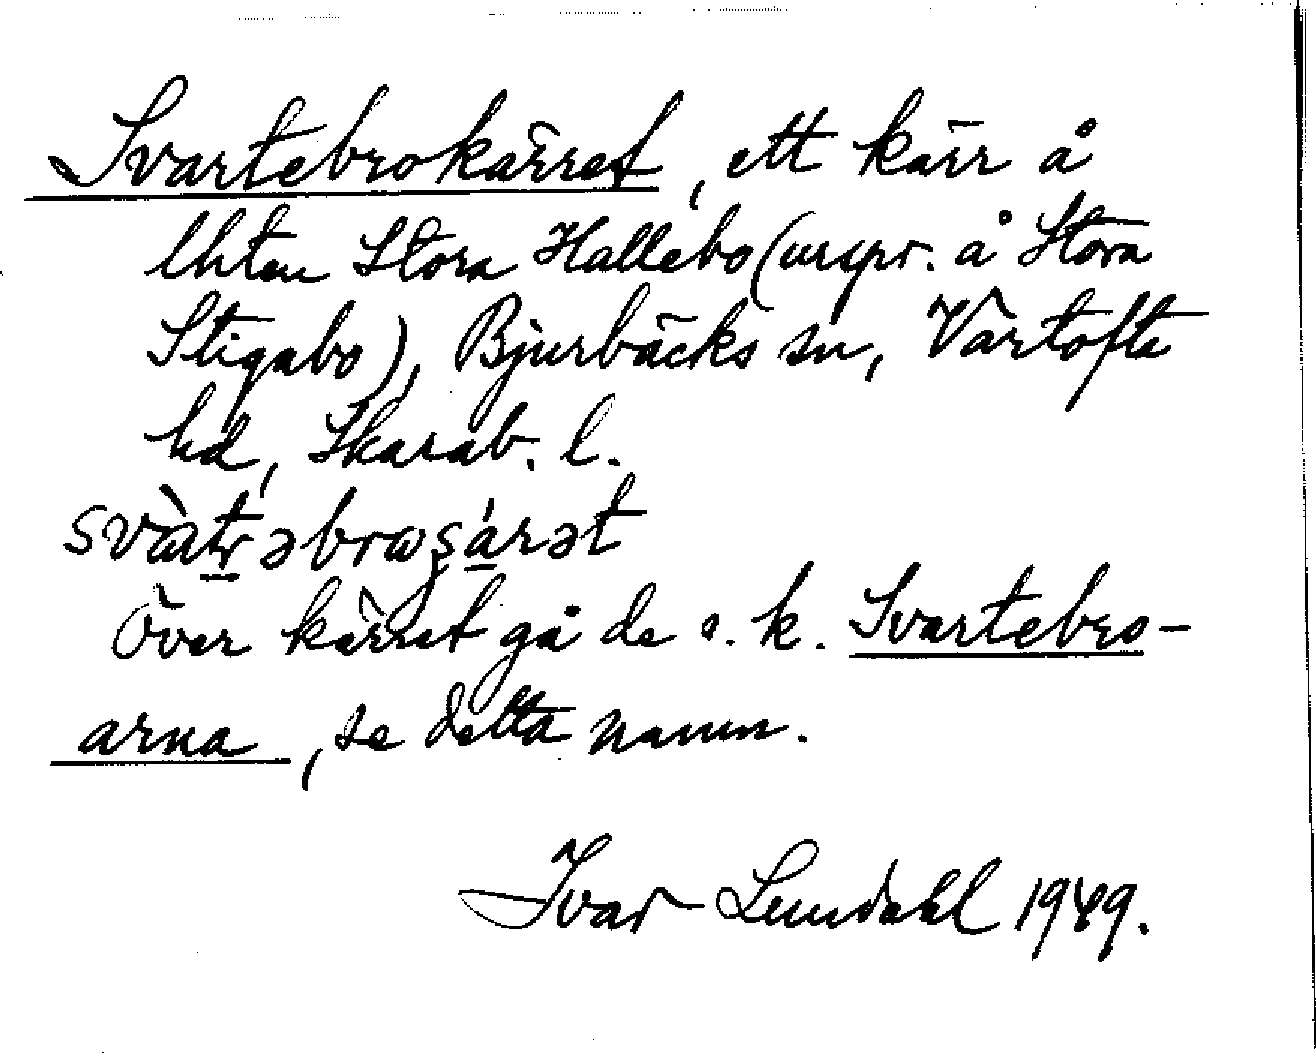 Svartebrokärret, ett kärr å
lhten Stora Hallebo (urspr. å Stora
Stigabo), Bjurbäcks sn, Vartofta
hd, Skarab. l.
svàtrəbroşárət
Över kärret gå de s. k. Svartebro-
arna, se detta namn.
Ivar Lundahl 1949.